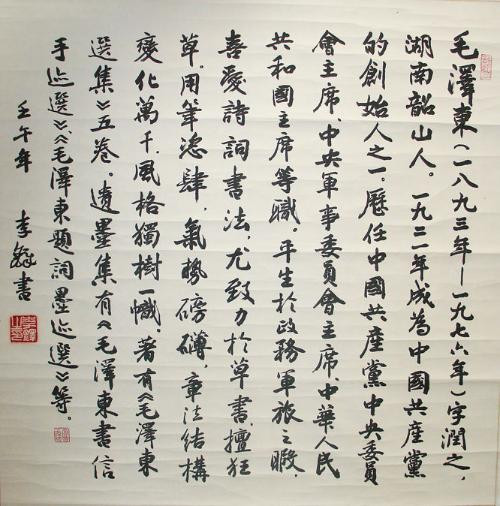 毛澤東(一八九三年—一九七六年)字潤之,
湖南韶山人。一九二一年成為中國共産黨
的創始人之一。歷任中國共産黨中央委員
會主席、中央軍事委員會主席、中華人民
共和國主席等職。平生於政務軍旅之暇,
喜愛詩詞書法,尤致力於草書,擅狂
草。用筆恣肆,氣勢磅礴,章法結構
變化萬千,風格獨樹一幟。著有《毛澤東
選集》五卷。遺墨集有《毛澤東書信
手迹選》、《毛澤東題詞墨迹選》等。
壬午年 李 書